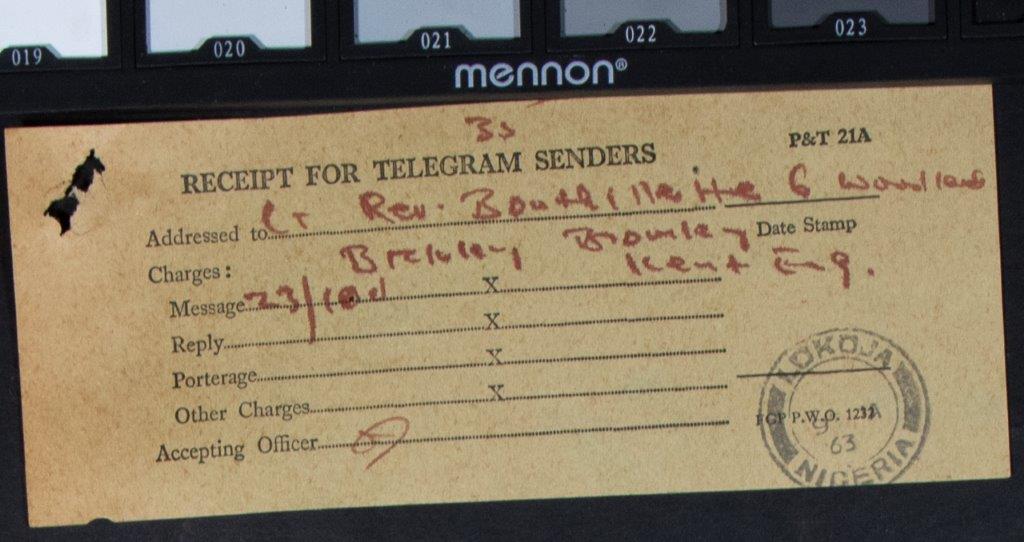 019 020 021 022 023
mennon®
Bs
P&T 21A
RECEIPT FOR TELEGRAM SENDERS
Addressed to Lt Rev. 6
Bromley
Date Stamp
Charges:
Kent Eng.
Message 23/10d X
Reply X
Porterage X
Other Charges X
Accepting Officer
LOKOJA
FGP P.W.O. 1232
63
NIGERIA